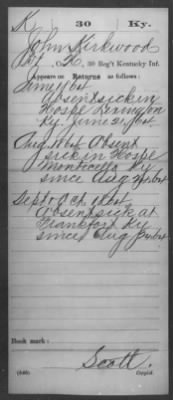 K 30 Ky.
John Kirkwood
Pvt, Co. K, 30 Reg't Kentucky Inf.
Appears on Returns as follows:
June 1864
Absent sick in
Hospl Lexington
Ky June 21, 1864
Aug 1864 Absent
sick in Hospl
Monticello Ky
since Aug 24, 1864
Sept & Oct 1864
Absent sick at
Frankfort Ky
since Aug
Book mark:
Scott.
(546) Copyist.